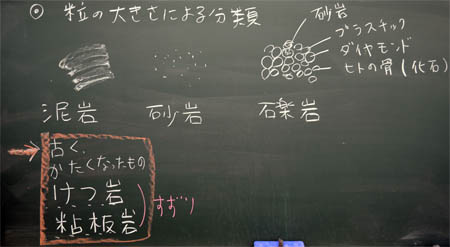 ◎ 粒の大きさによる分類
砂岩
プラスチック
ダイヤモンド
ヒトの骨(化石)
泥岩 砂岩 石楽岩
古く、
かたくなったもの
けつ岩
粘板岩
すずり